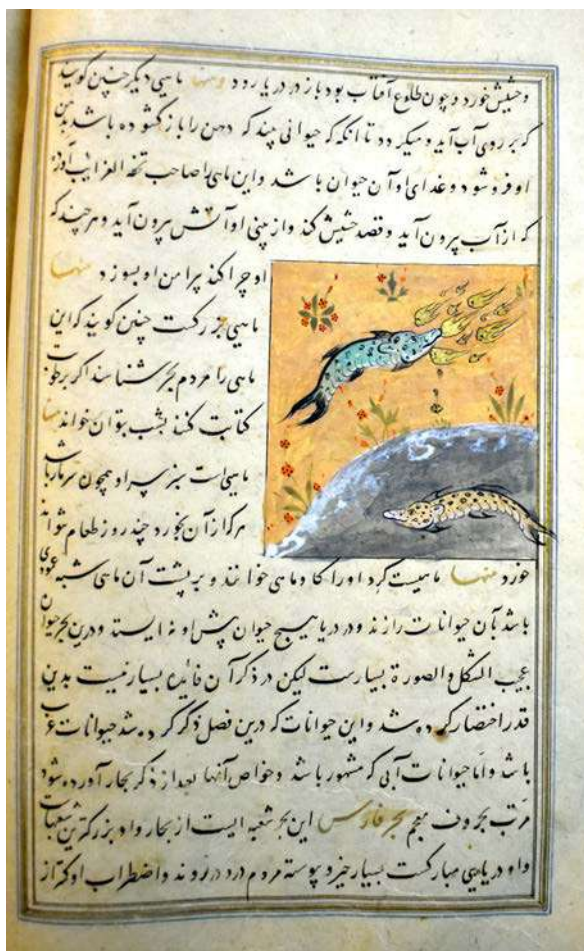 وحشیش خورد و چون طلوع آفتاب بود باز در دریا رود ومنها ماهیی دیگر چنین گویند
که بر روی آب آید و میکردد تا آنکه که حیوانی بیند که دهن را باز گشوده باشد
او فرو شود و غذای او آن حیوان باشد و این ماهی را صاحب تحفة الغرایب آورده
که از آب بیرون آید و قصد حشیش کند و از بینی او آتش بیرون آید و هرچند که
او چرا کند پیرامن او بسوزد منها
ماهیی بزرکست چنین گویند که این
ماهی را مردم بحر شناسند اکر برطوبت
کتابت کنند بشب بتوان خواند منها
ماهیی است سبز سر او همچون سر مار باشد
هر که از آن بخورد چند روز طعام نتواند
خورد منها ماهییست کرد او را کاو ماهی خوانند و بر پشت آن ماهی شبه عمودی
باشد بآن حیوانات را زند و در دریا هیچ حیوان پیش او نه ایستد و درین بحر حیوان
عجیب الشکل و الصورة بسیارست لیکن در ذکر آن فایده بسیار نیست بدین
قدر اختصار کرده شد و این حیوانات که درین فصل ذکر کرده شد حیوانات
باشد و اما حیوانات آبی که مشهور باشد و خواص آنها بعد از ذکر بحار آورده شود
مرتب بحروف معجم بحر فارس این بحر شعبه ایست از بحار و او بزرکترین شعبهاست
و او دریایی مبارکست بسیار خیر و پیوسته مردم درو روند و اضطراب او کمتر از